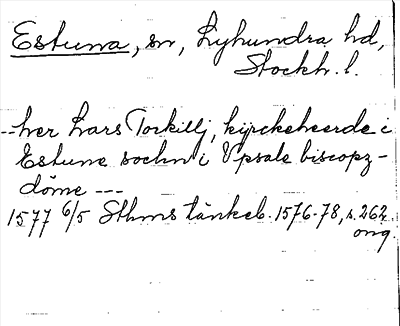 Estuna, sn, Lyhundra hd,
Stockh. l.
--her Lars Torkillj, kyrckeheerde i
Estune sochn i Vpsale biscopz-
döme ---
1577 6/5 Sthms tänkeb. 1576-78, s. 262
orig.